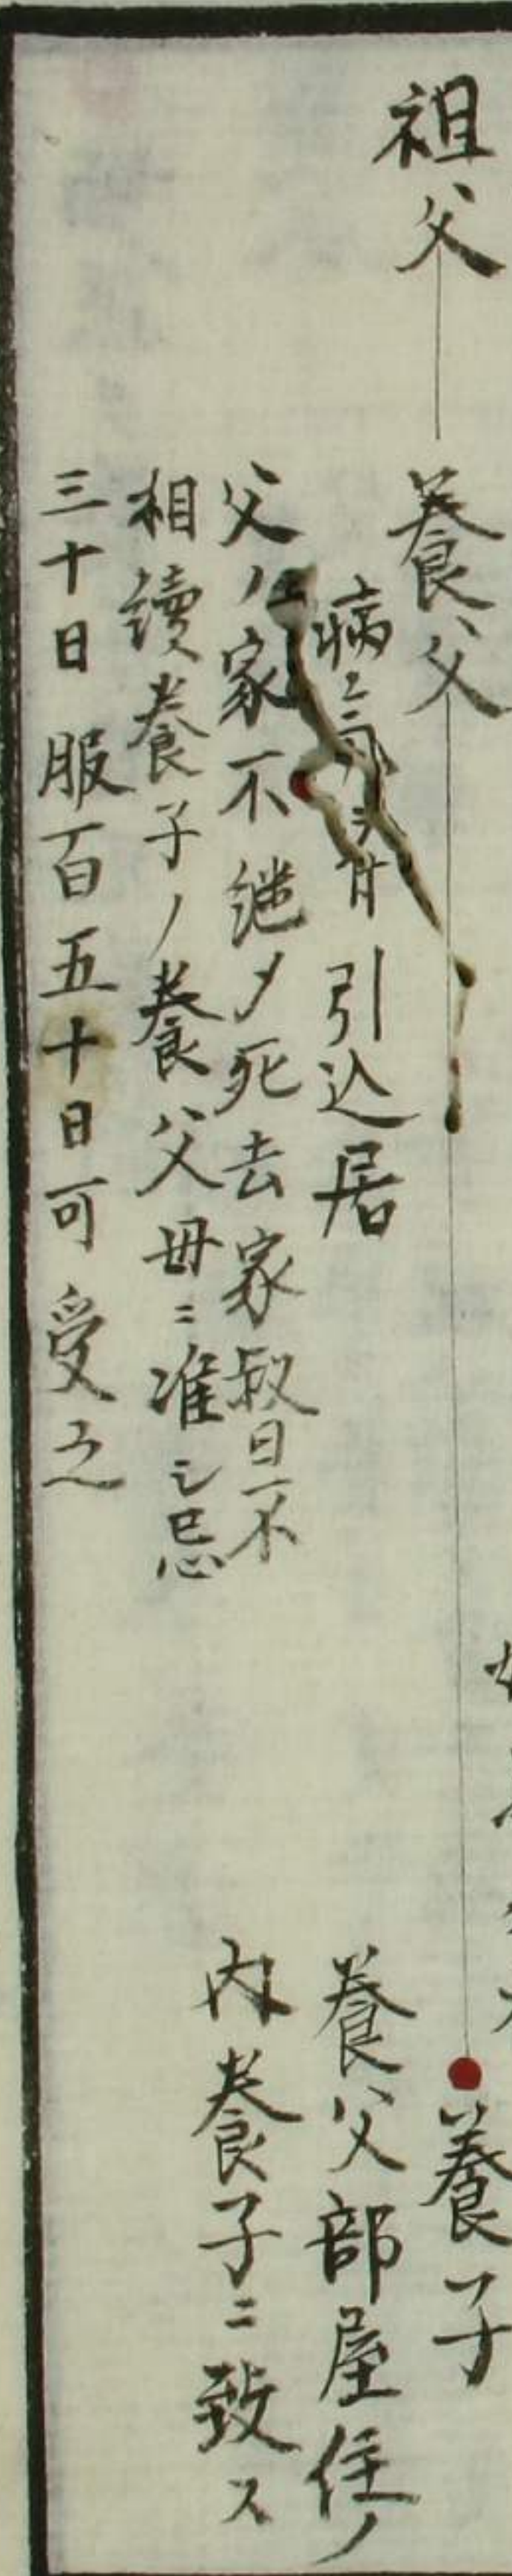 祖父
養父
病気ニ者引込居
父ノ家不継〆死去家叔旦不
相續養子ノ養父母ニ准シ忌
三十日服百五十日可受之
養子
養父部屋住ノ
内養子ニ致ス